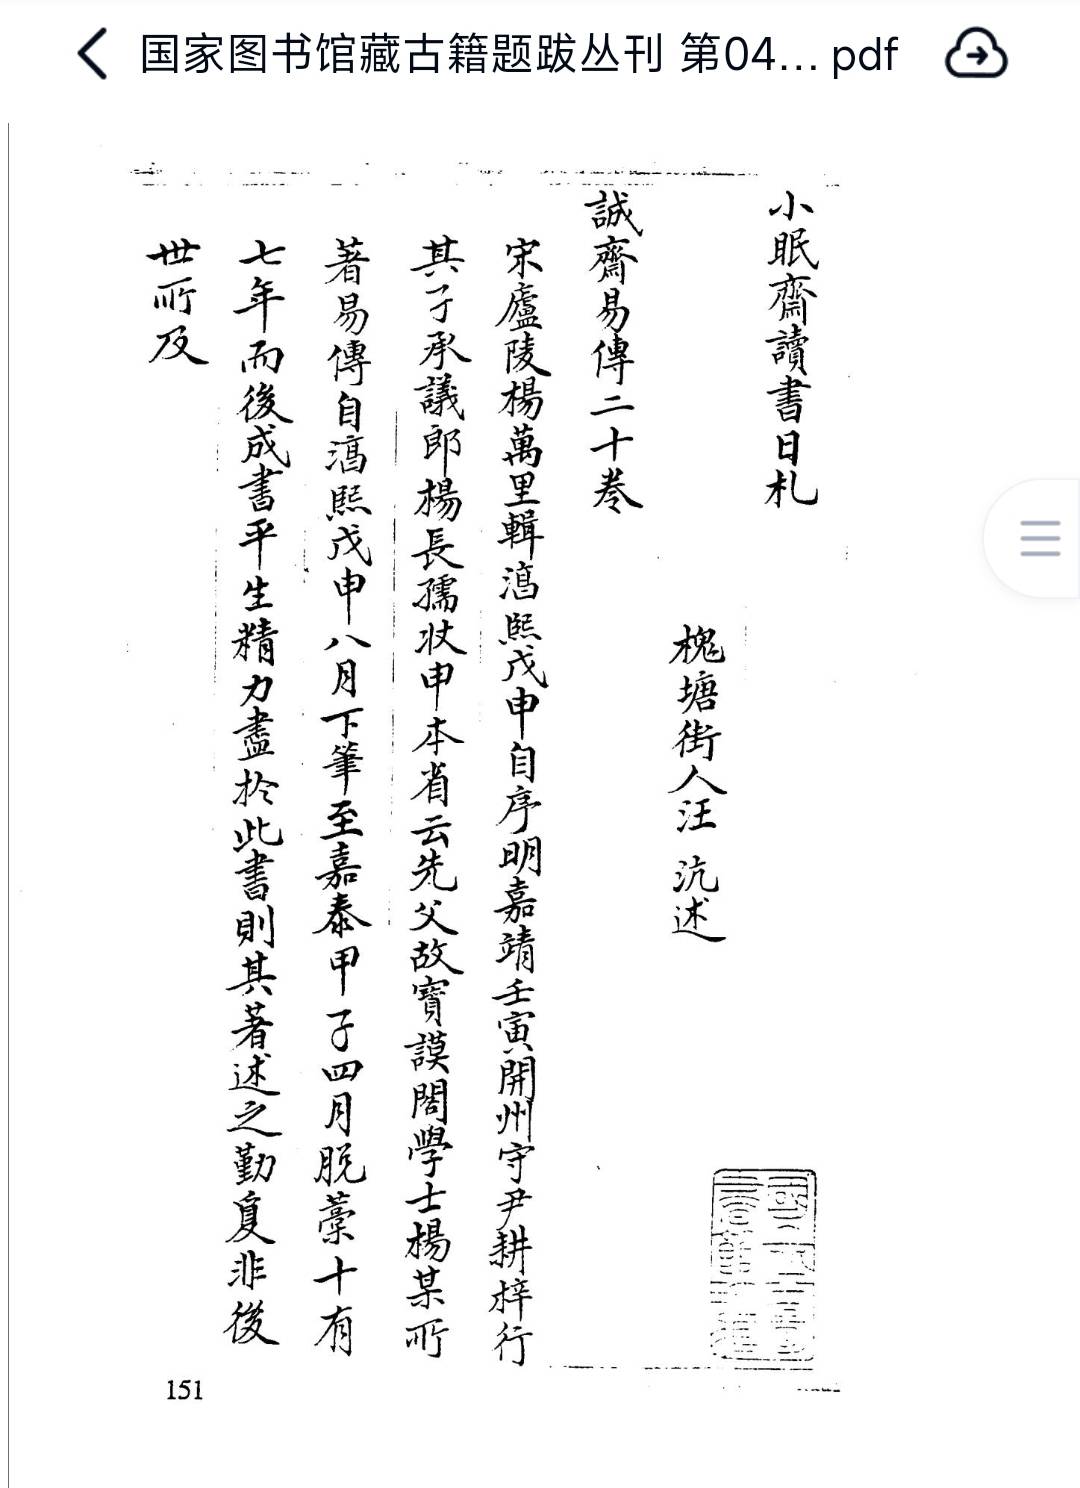 国家图书馆藏古籍题跋丛刊 第04... pdf
小眠齋讀書日札
槐塘街人汪沆述
誠齋易傳二十卷
宋廬陵楊萬里輯淳熙戊申自序明嘉靖壬寅開州守尹耕梓行
其子承議郎楊長孺狀申本省云先父故寶謨閣學士楊某所
著易傳自淳熙戊申八月下筆至嘉泰甲子四月脫藁十有
七年而後成書平生精力盡於此書則其著述之勤夐非後
世所及
151